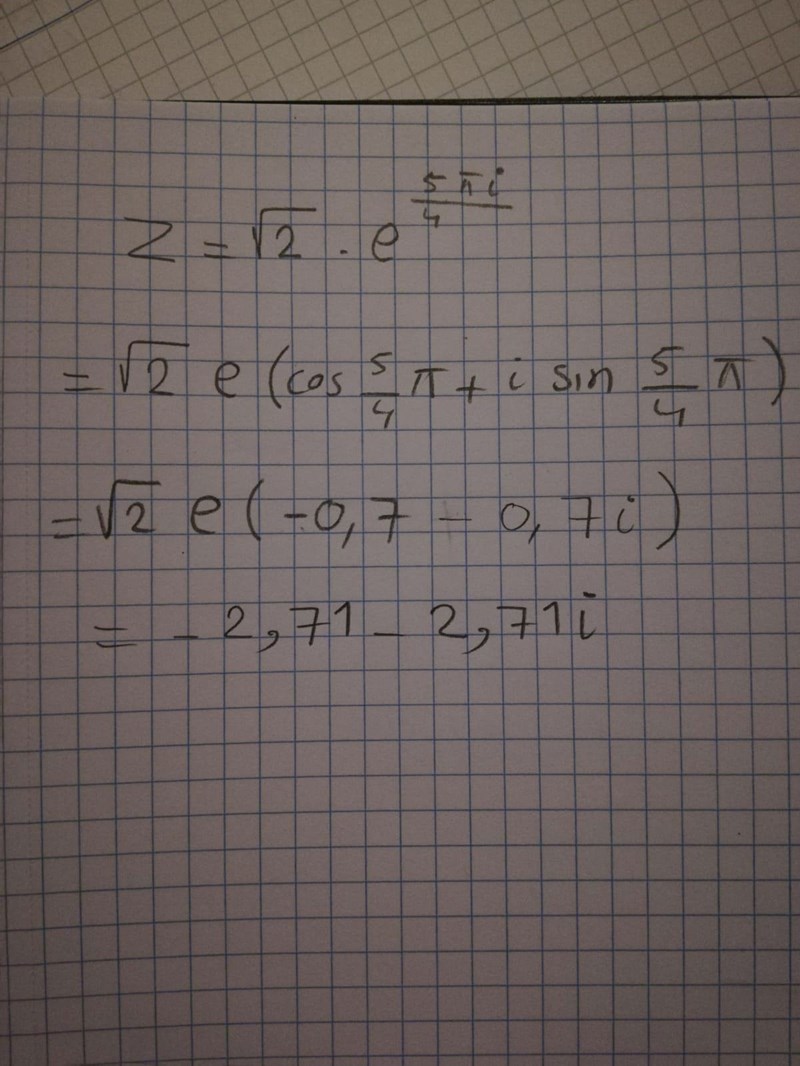 Z = √2 · e^(5πi/4)
= √2 e (cos 5/4 π + i sin 5/4 π)
= √2 e (-0,7 - 0,7i)
= - 2,71 - 2,71i